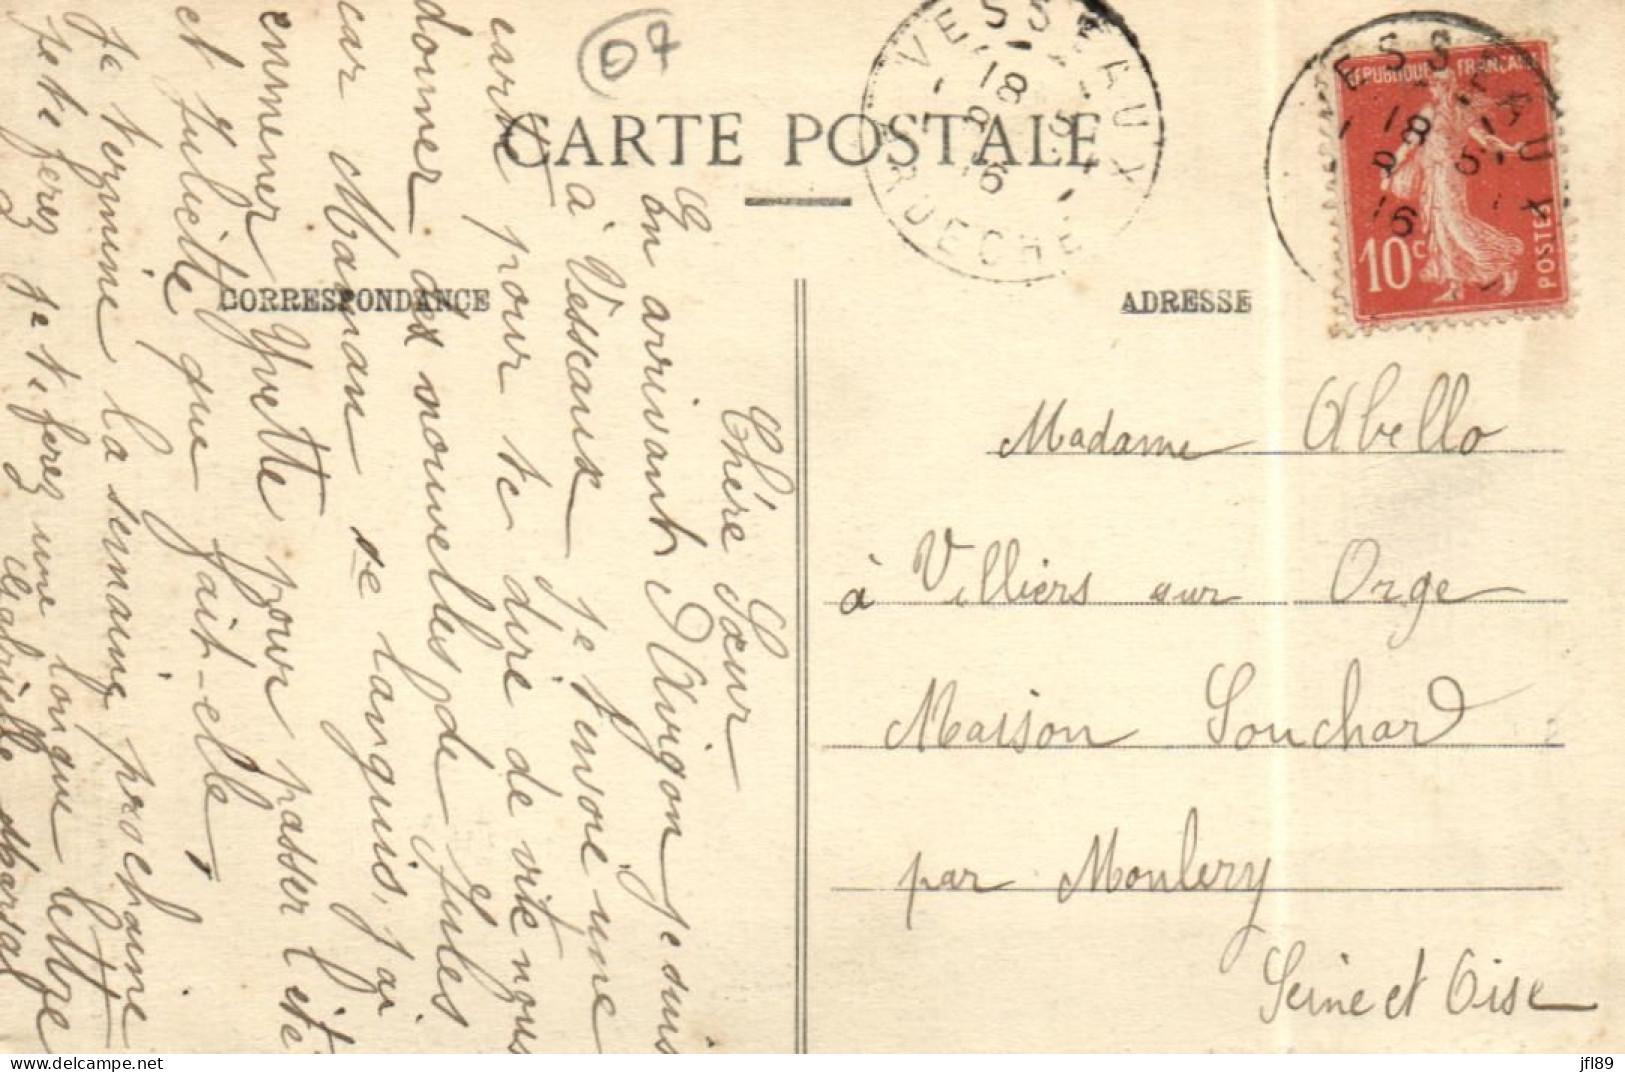 07
CARTE POSTALE
CORRESPONDANCE
ADRESSE
VESSEAUX
18
16
ARDECHE
ESSEAUX
18
16
REPUBLIQUE FRANÇAISE
10c
POSTES
Chère Sœur
En arrivant D'Avigon je suis
à Vesseaux je t'envoie une
carte pour te dire de vite nous
donner des nouvelles de Jules
car Maman se languis, j'ai
emmener Yvette pour passer l'été
et Juliette que fait-elle,
Je termine la semaine prochaine
je te ferez une longue lettre
Madame Abello
à Villiers sur Orge
Maison Souchard
par Monlery
Seine et Oise
jfl89